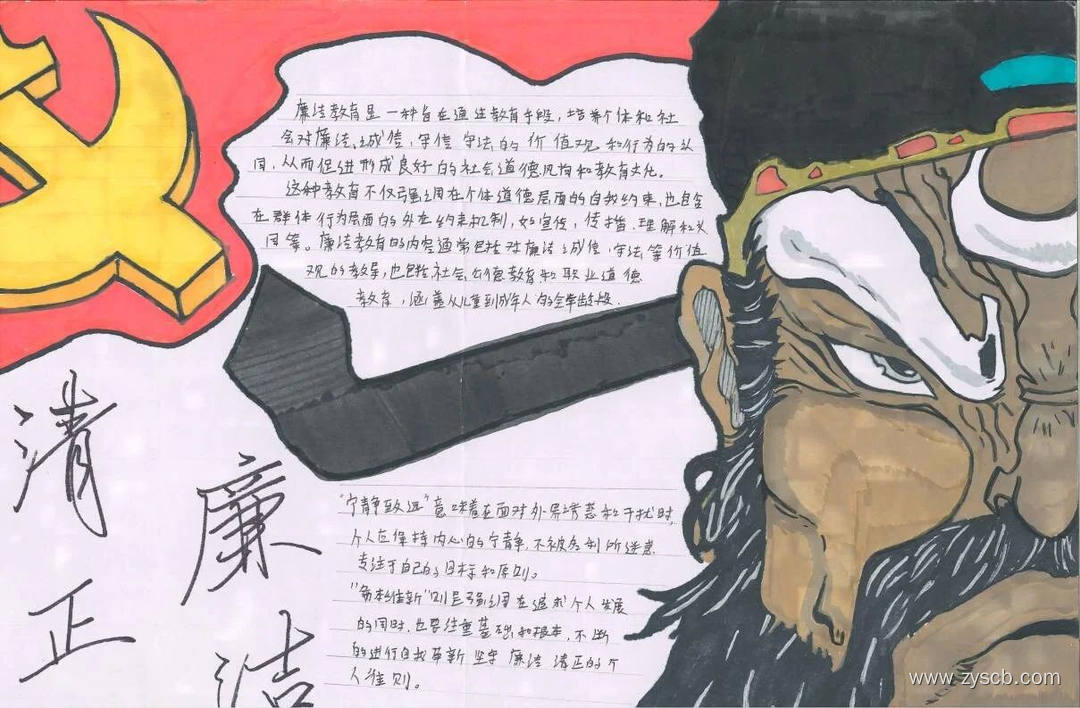 廉洁教育是一种旨在通过教育手段,培养个体和社
会对廉洁、诚信、守信、守法的价值观和行为的认
同,从而促进形成良好的社会道德风尚和教育文化。
这种教育不仅强调在个体道德层面的自我约束,也包含
在群体行为层面的外在约束机制,如宣传,传播、理解和认
同等。廉洁教育的内容通常包括对廉洁、诚信、守法等价值
观的教导,也包括社会公德教育和职业道德
教育,涵盖从儿童到成年人的全年龄段.
清正
廉洁
"宁静致远"意味着在面对外界诱惑和干扰时,
个人应保持内心的宁静,不被名利所迷惑
专注于自己的目标和原则。
"务本维新"则是强调在追求个人发展
的同时,也要注重基础和根本,不断
的进行自我革新 坚守 廉洁 清正的个
人准则。
www.zyscb.com